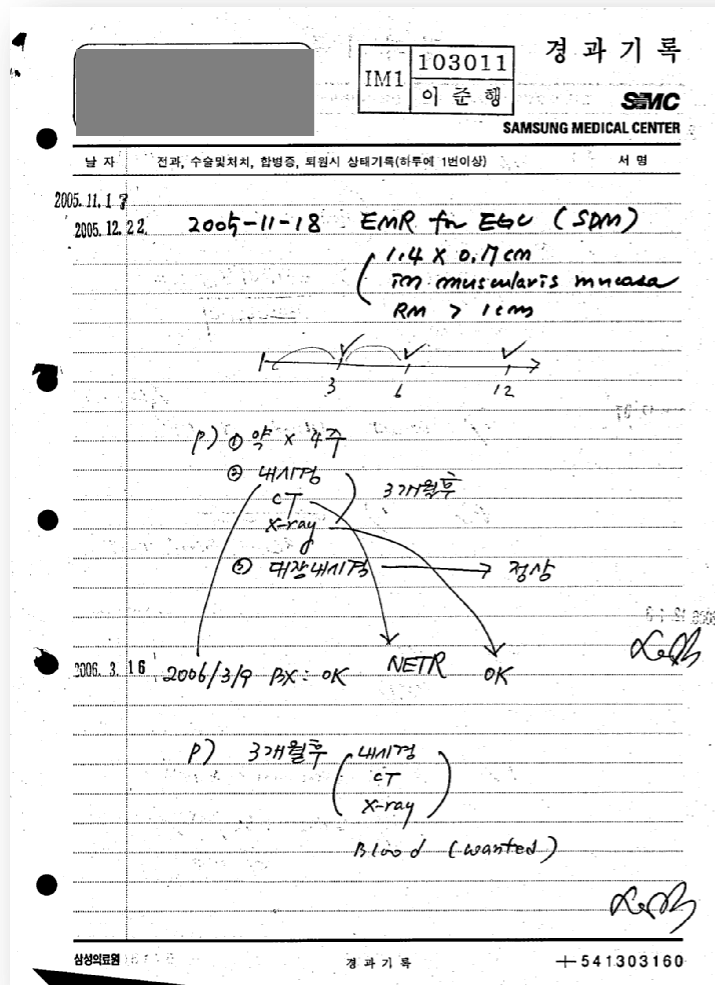 경 과 기 록
IM1 103011
이 준 행
SMC
SAMSUNG MEDICAL CENTER
날 자 전과, 수술및처치, 합병증, 퇴원시 상태기록(하루에 1번이상) 서 명
2005. 11. 17
2005. 12. 22 2005-11-18 EMR for EGC (SDM)
1.4 X 0.7 cm
im muscularis mucosa
RM > 1cm
3 6 12
p) ① 약 x 4주
② 내시경
CT 3개월후
X-ray
③ 대장내시경 → 정상
2006. 3. 16 2006/3/9 BX : OK NETR OK
p) 3개월후 내시경
CT
X-ray
Blood (wanted)
삼성의료원 경 과 기 록 541303160